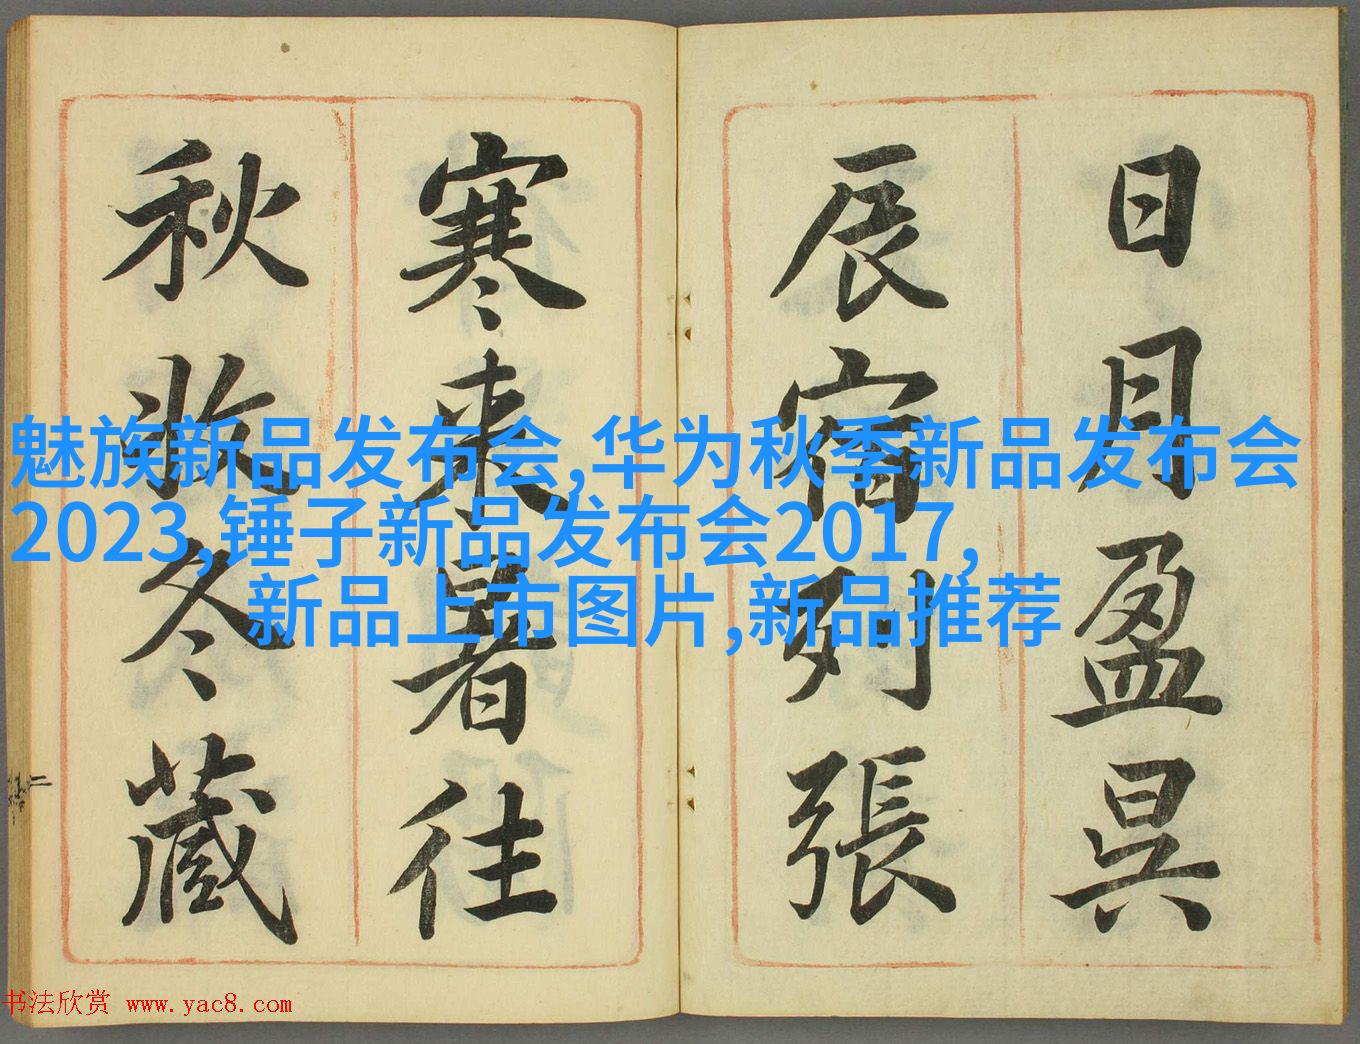 日月盈昃
辰宿列張
寒来暑往
秋收冬藏
魅族新品发布会,华为秋季新品发布会
2023,锤子新品发布会2017,
新品上市图片,新品推荐
书法欣赏 www.yac8.com